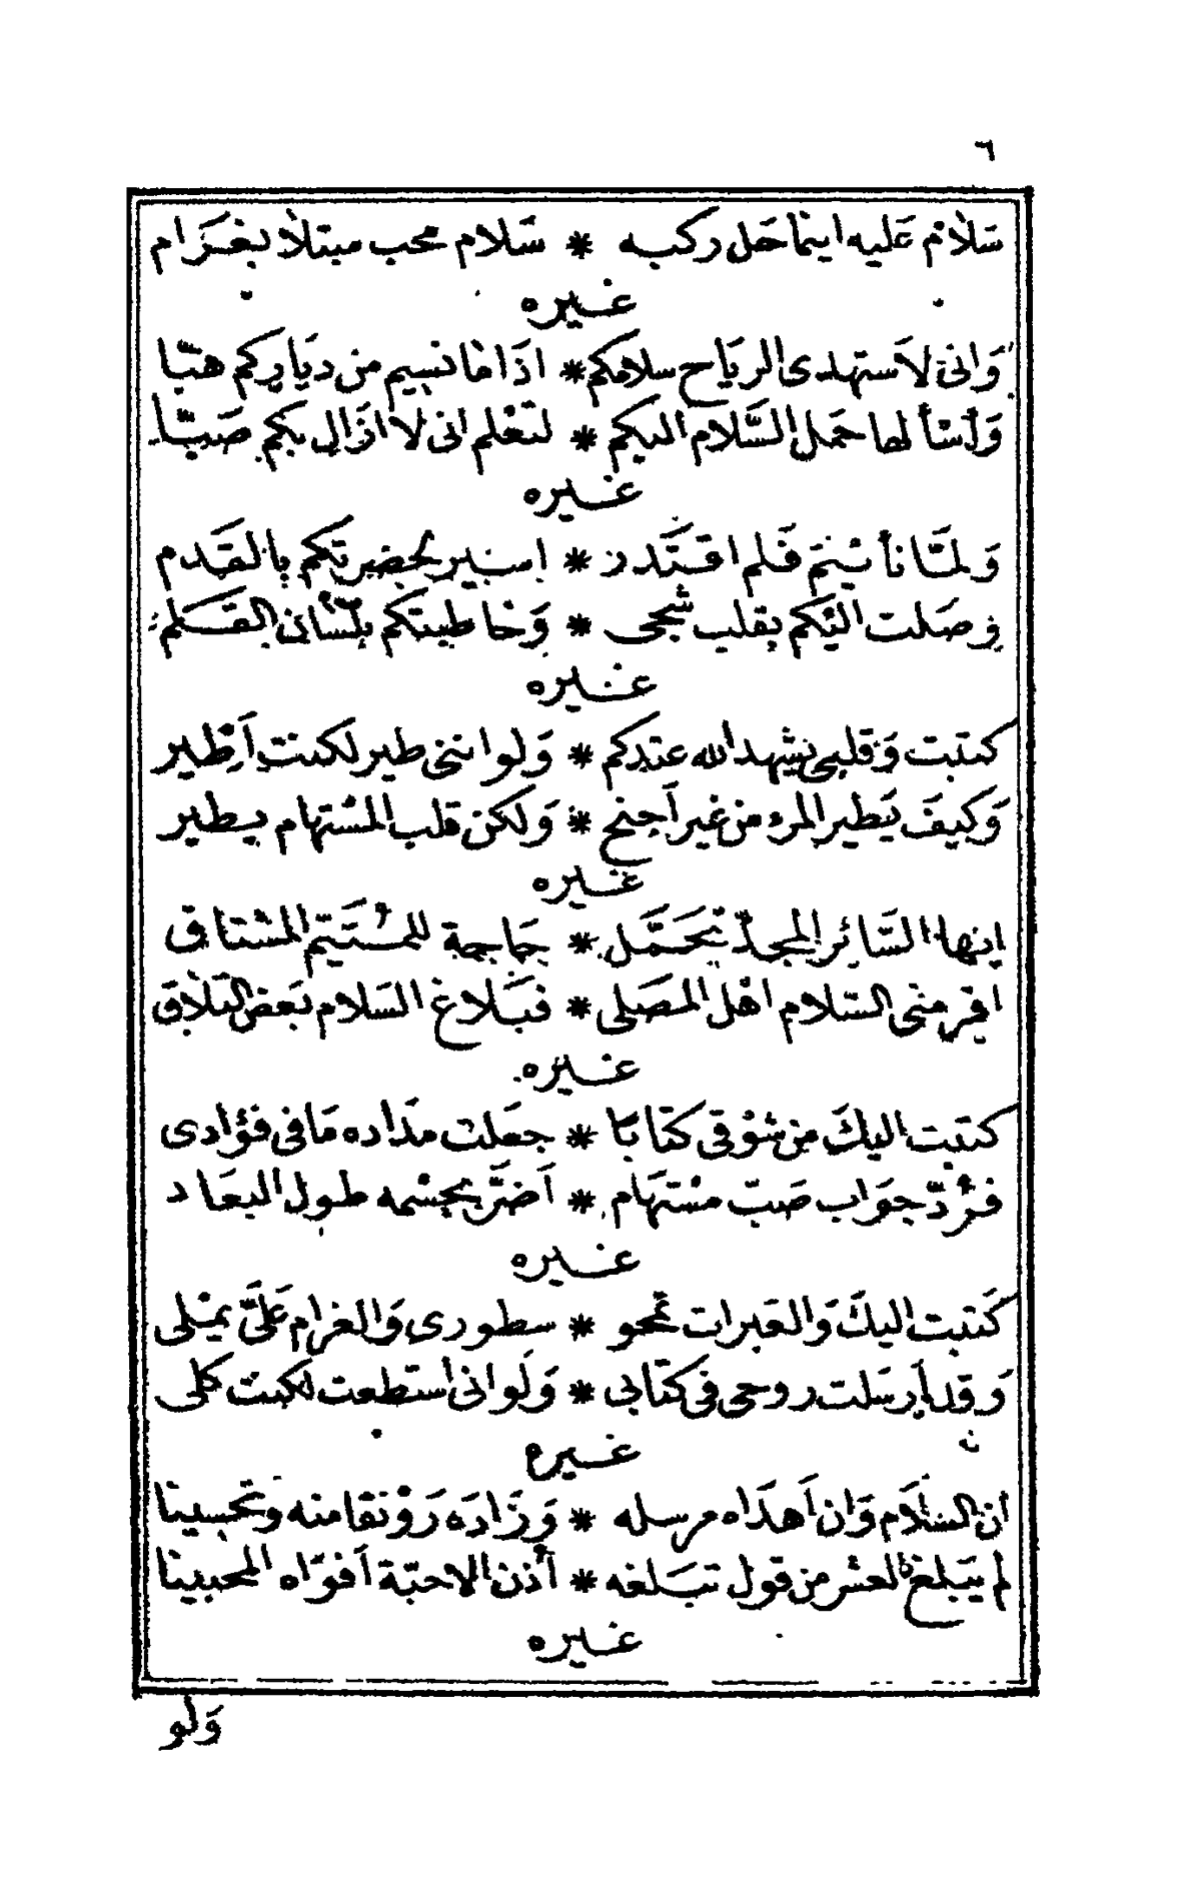 ٦
سَلامٌ عَلَيه اينما حَل ركبه * سَلام محب مبتلاً بغَرَام
غيره
وَانى لاَستهدى الريَاح سلامكم * اذَا ما نسيم من ديَاركم هبّا
وَأسْألها حَمل السَّلام اليكم * لتعْلم انى لا ازَال بكم صَبّا
غيره
وَلمّا نأيْتم فَلم اقتَدر * اسير لحضرتكم بالقَدم
وصَلت اليكم بقلب شجى * وَخاطبتكم بلسَان القَلم
غيره
كتبت وَقلبى يشهد الله عندكم * وَلو اننى طير لكنت اَطير
وَكيفَ يَطير المرء من غير اَجنح * وَلكن قلب المسْتهام يطير
غيره
ايها السَّائر المجدّ تحَمَّل * حَاجة للمُتَيَّم المشتاق
اقر منى السّلام اهْل المصَلى * فبَلاغ السَلام بَعض التلاق
غيره
كتبت اليكَ من شوْقى كتابًا * جعَلت مدَاده مَا فى فؤادى
فرُدّ جوَاب صَبّ مسْتهَام * اَضرَّ بجسْمه طول البعَاد
غيره
كَتبت اليكَ وَالعَبرات تمحو * سطورى وَالغرام عَلَىّ يمْلى
وَقد أرسَلت روحى فى كتابى * وَلَو انى أستطعت لكنت كلى
غيره
ان السّلاَم وَان اَهدَاه مرسله * وَزَادَه رَوْنقا منه وتحسينا
لم يَبلغ العشر من قول تبَلغه * أذن الاحبّة اَفوَاه المحبينا
غيره
وَلو